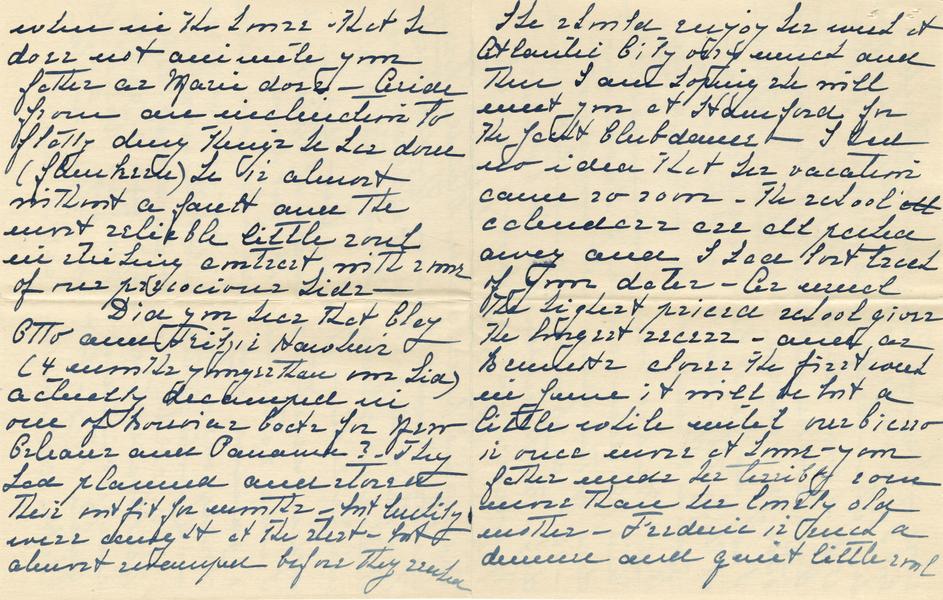 when in the house - that he
does not animate your
father as Marie does - Aside
from an inclination to
flatly deny things he has done
he is almost
without a fault and the
most reliable little soul
in striking contrast with some
of our precocious kids -
Did you hear that Clay
Otto and Fritzie
(4 months younger than our Sid)
actually decamped in
one of boats for New
Orleans and Panama? They
had planned and stored
their outfit for months - but luckily
were caught at the start - but
almost escaped before they reached
She should enjoy her week at
Atlantic City very much and
then I am hoping she will
meet you at Stamford for
the Club dance - I had
no idea that her vacation
came so soon - The school
calendars are all packed
away and I had lost track
of your dates - As usual
the highest priced school gives
the longest recess - and as
Bennett closes the first week
in June it will be but a
little while until
is once more at home - your
father needs her terribly even
more than her lonely old
mother - Frederic is such a
demure and quiet little soul